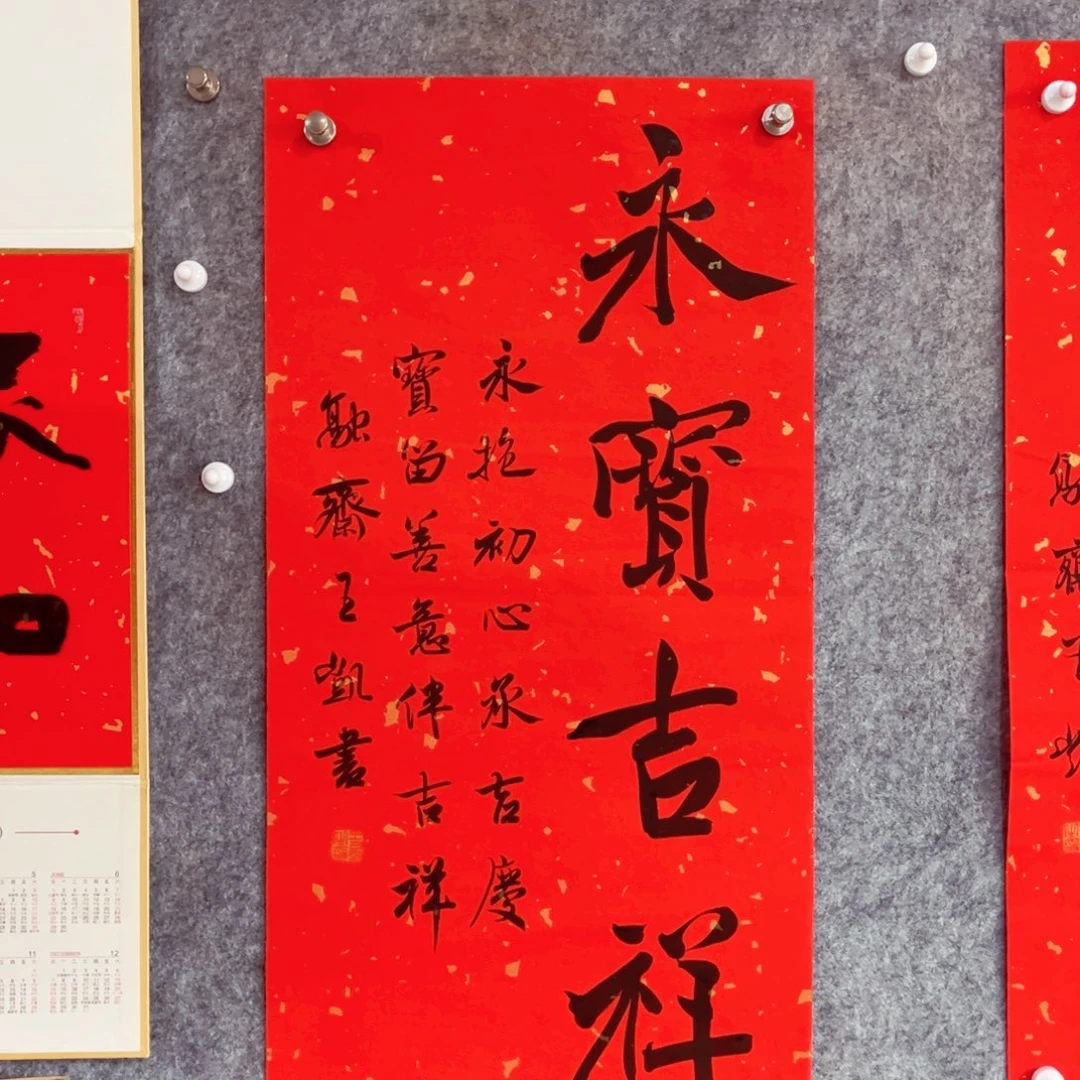 永寶吉祥
永抱初心承吉慶
寶留善意伴吉祥
融齋王凱書